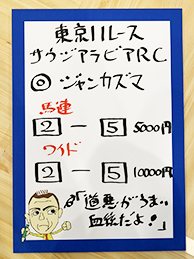 東京11レース
サウジアラビアRC
◎ ジャンカズマ
馬連
2 - 5 5000円
ワイド
2 - 5 10000円
「道悪がうまい
血統だよ!」